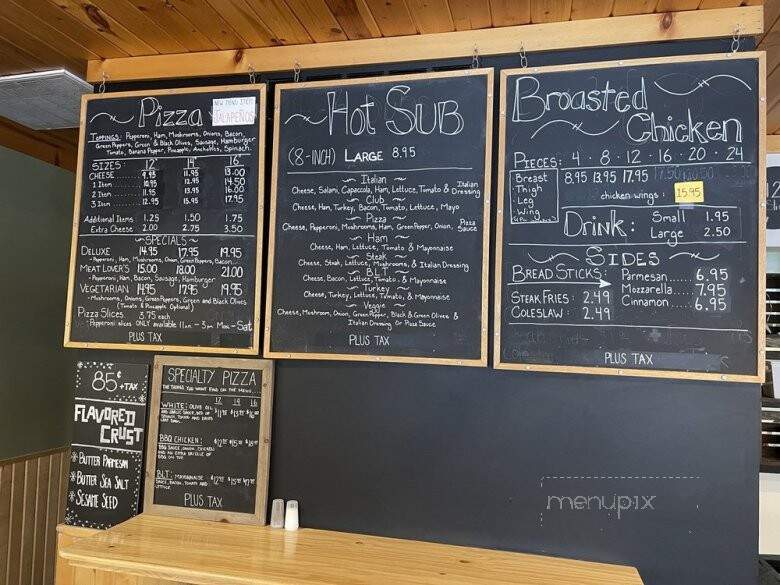 Pizza
NEW MENU ITEM
JALAPEÑOS
TOPPINGS: Pepperoni, Ham, Mushrooms, Onions, Bacon,
Green Peppers, Green & Black Olives, Sausage, Hamburger
Tomato, Banana Pepper, Pineapple, Anchovies, Spinach.
SIZES: 12" 14" 16"
CHEESE 9.95 11.95 13.00
1 Item 10.95 12.95 14.50
2 Item 11.95 13.95 16.00
3 Item 12.95 15.95 17.95
Additional Items 1.25 1.50 1.75
Extra Cheese 2.00 2.75 3.50
~SPECIALS~
DELUXE 14.95 17.95 19.95
- Pepperoni, Ham, Mushrooms, Onion, Green Peppers, Bacon
MEAT LOVER'S 15.00 18.00 21.00
- Pepperoni, Ham, Bacon, Sausage, Hamburger
VEGETARIAN 14.95 17.95 19.95
- Mushrooms, Onions, Green Peppers, Green and Black Olives
(Tomato & Pineapple Optional)
Pizza Slices 3.75 each
Pepperoni slices ONLY available 11am - 3pm Mon - Sat
PLUS TAX
Hot SUB
(8-INCH) LARGE 8.95
~ Italian ~
Cheese, Salami, Capacolla, Ham, Lettuce, Tomato & Italian Dressing
~ Club ~
Cheese, Ham, Turkey, Bacon, Tomato, Lettuce, Mayo
~ Pizza ~
Cheese, Pepperoni, Mushrooms, Ham, Green Pepper, Onion, Pizza Sauce
~ Ham ~
Cheese, Ham, Lettuce, Tomato & Mayonnaise
~ Steak ~
Cheese, Steak, Lettuce, Mushrooms, & Italian Dressing
~ B.L.T ~
Cheese, Bacon, Lettuce, Tomato, & Mayonnaise
~ Turkey ~
Cheese, Turkey, Lettuce, Tomato, & Mayonnaise
~ Veggie ~
Cheese, Mushroom, Onion, Green Pepper, Black & Green Olives &
Italian Dressing Or Pizza Sauce
PLUS TAX
Broasted
Chicken
PIECES: 4 · 8 · 12 · 16 · 20 · 24
Breast
Thigh
Leg
Wing
8.95 13.95 17.95
chicken wings : 15.95
DRINK: Small 1.95
Large 2.50
~ SIDES ~
BREAD STICKS:
Parmesan 6.95
Mozzarella 7.95
Cinnamon 6.95
STEAK FRIES: 2.49
COLESLAW: 2.49
PLUS TAX
85¢
+TAX
FLAVORED
CRUST
* BUTTER PARMESAN
* BUTTER SEA SALT
* SESAME SEED
SPECIALTY PIZZA
THE THINGS YOU WANT FOUND ON THE MENU...
12 14 16
WHITE: OLIVE OIL
BBQ CHICKEN:
BBQ SAUCE, ONION, CHICKEN
BLT: MAYONNAISE
SAUCE, BACON, TOMATO AND
LETTUCE
PLUS TAX
menupix